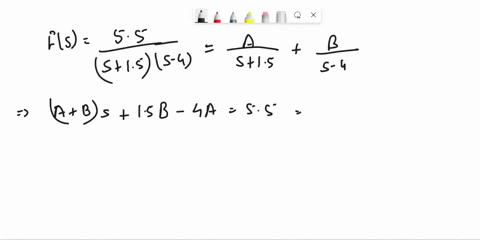 F̂(s) = 5.5 / (s+1.5)(s-4) = A / s+1.5 + B / s-4
⇒ (A+B)s + 1.5B - 4A = 5.5 =